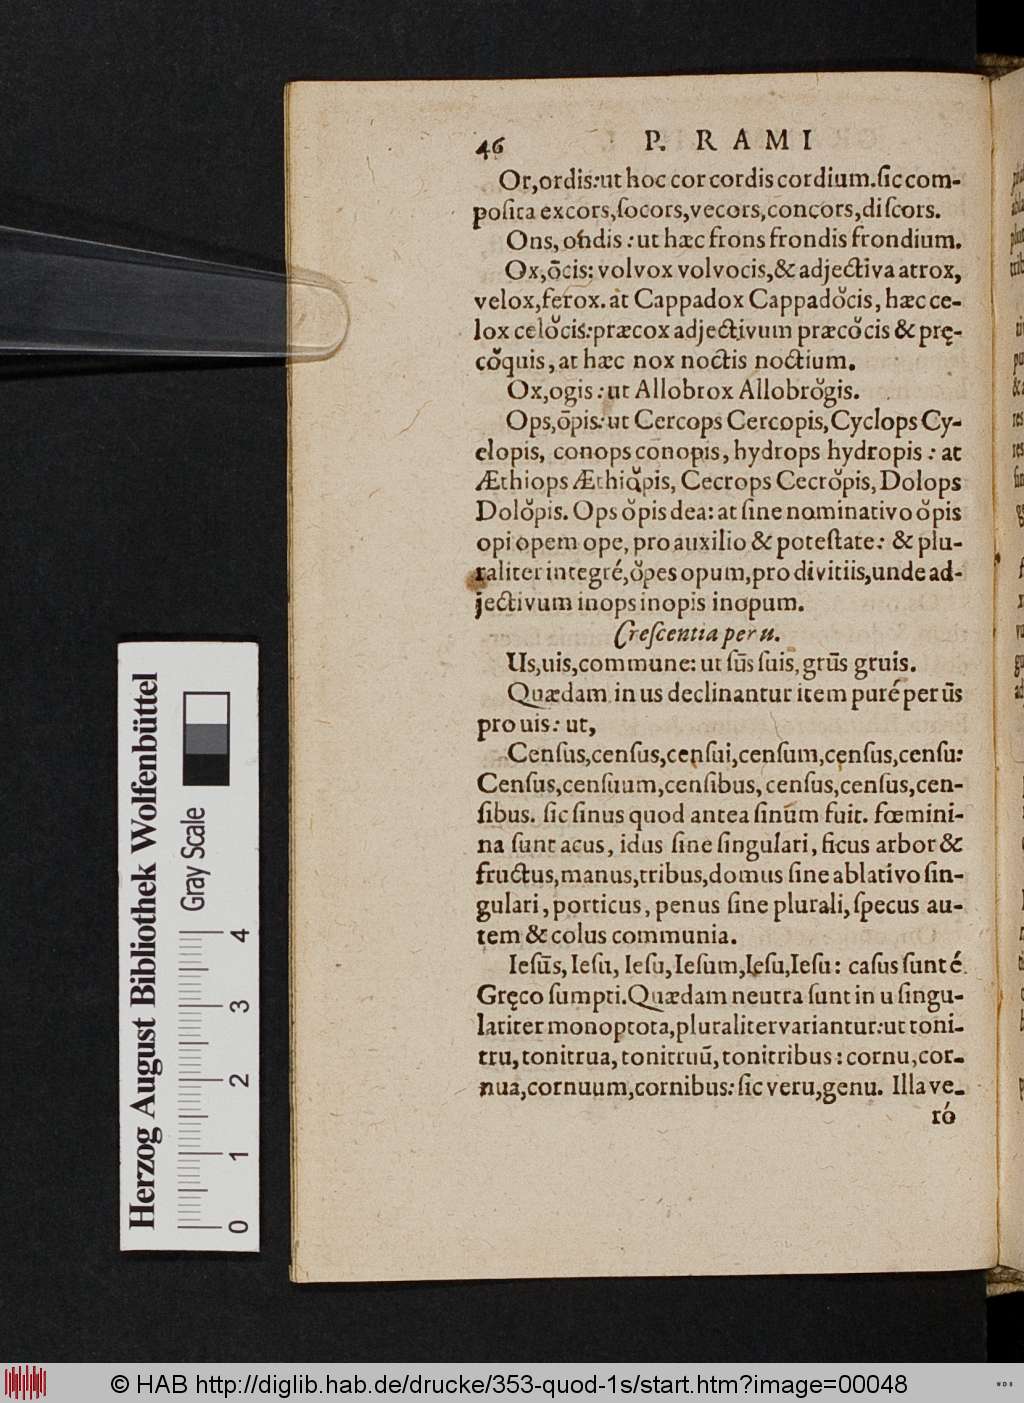 46 P. RAMI
Or,ordis:ut hoc cor cordis cordium.ſic com-
poſita excors,ſocors,vecors,concors,diſcors.
Ons, ondis : ut hæc frons frondis frondium.
Ox,ōcis: volvox volvocis,& adjectiva atrox,
velox,ferox. at Cappadox Cappadŏcis, hæc ce-
lox celŏcis:præcox adjectivum præcŏcis & prę-
cŏquis, at hæc nox noctis noctium.
Ox,ogis : ut Allobrox Allobrŏgis.
Ops,ōpis: ut Cercops Cercopis, Cyclops Cy-
clopis, conops conopis, hydrops hydropis : at
Æthiops Æthiŏpis, Cecrops Cecrŏpis, Dolops
Dolŏpis. Ops ŏpis dea: at ſine nominativo ŏpis
opi opem ope, pro auxilio & poteſtate: & plu-
raliter integré,ŏpes opum,pro divitiis,unde ad-
jectivum inops inopis inopum.
Creſcentia per u.
Us,uis,commune: ut ſūs ſuis, grūs gruis.
Quædam in us declinantur item puré per ūs
pro uis: ut,
Cenſus,cenſus,cenſui,cenſum,cenſus,cenſu:
Cenſus,cenſuum,cenſibus, cenſus,cenſus,cen-
ſibus. ſic ſinus quod antea ſinum fuit. fœmini-
na ſunt acus, idus ſine ſingulari, ficus arbor &
fructus,manus,tribus,domus ſine ablativo ſin-
gulari, porticus, penus ſine plurali, ſpecus au-
tem & colus communia.
Ieſūs, Ieſu, Ieſu,Ieſum,Ieſu,Ieſu: caſus ſunt é
Gręco ſumpti.Quædam neutra ſunt in u ſingu-
lariter monoptota,pluraliter variantur:ut toni-
tru, tonitrua, tonitruū, tonitribus : cornu, cor-
nua,cornuum,cornibus: ſic veru,genu. Illa ve-
ró
Herzog August Bibliothek Wolfenbüttel
Gray Scale
0 1 2 3 4
© HAB http://diglib.hab.de/drucke/353-quod-1s/start.htm?image=00048